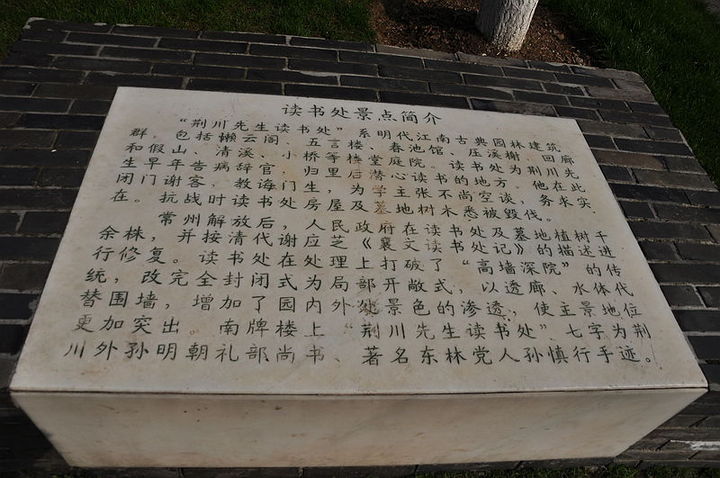 读书处景点简介
“荆川先生读书处”系明代江南古典园林建筑
群。包括懒云阁、五言楼、春池馆、压溪榭、回廊
和假山、清溪、小桥等楼堂庭院。读书处为荆川先
生早年告病辞官，归里后潜心读书的地方，他在此
闭门谢客，教诲门生，为学主张不尚空谈，务求实
在。抗战时读书处房屋及墓地树木悉被毁伐。
常州解放后，人民政府在读书处及墓地植树千
余株，并按清代谢应芝《襄文读书处记》的描述进
行修复。读书处在处理上打破了“高墙深院”的传
统，改完全封闭式为局部开敞式，以透廊、水体代
替围墙，增加了园内外处景色的渗透，使主景地位
更加突出。南牌楼上“荆川先生读书处”七字为荆
川外孙明朝礼部尚书、著名东林党人孙慎行手迹。